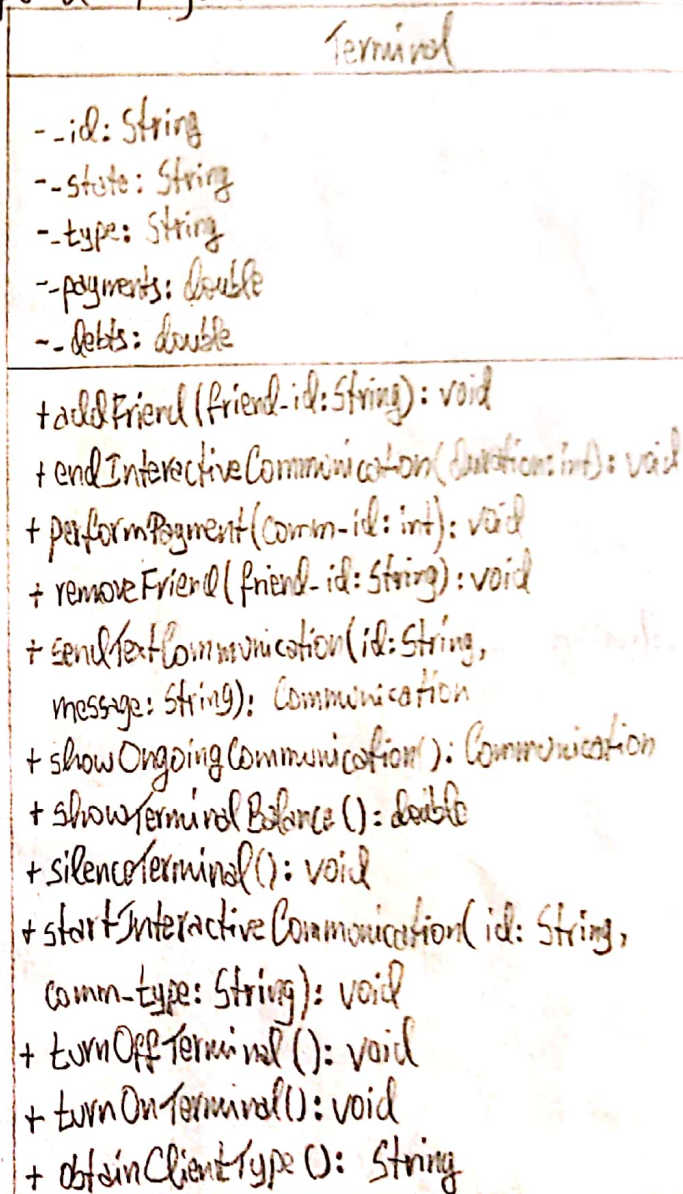 Terminal
- _id: String
- _state: String
- _type: String
- _payments: double
- _debts: double
+ addFriend(friend_id: String): void
+ endInteractiveCommunication(duration: int): void
+ performPayment(comm_id: int): void
+ removeFriend(friend_id: String): void
+ sendTextCommunication(id: String,
message: String): Communication
+ showOngoingCommunication(): Communication
+ showTerminalBalance(): double
+ silenceTerminal(): void
+ startInteractiveCommunication(id: String,
comm_type: String): void
+ turnOffTerminal(): void
+ turnOnTerminal(): void
+ obtainClientType(): String